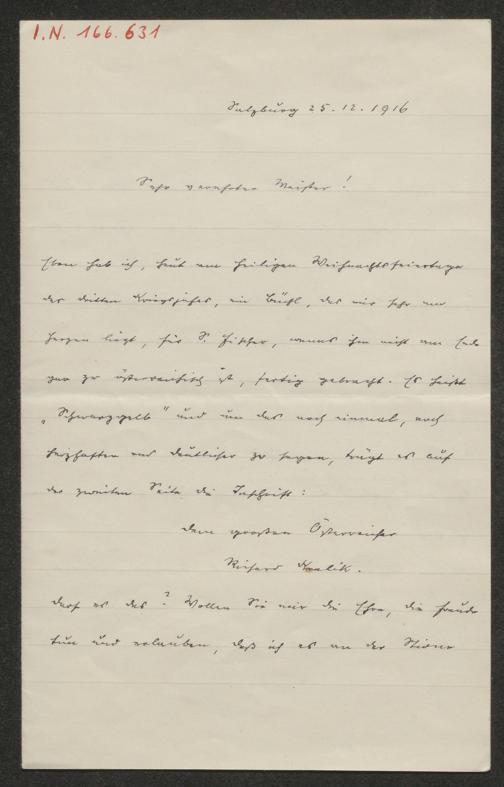 I.N. 166.631
Salzburg 25.12.1916
Sehr verehrter Meister!
Eben hab ich, heut am heiligen Weihnachtsfeiertage
des dritten Kriegsjahrs, ein Büchl, das mir sehr am
Herzen liegt, für S. Fischer, wenns ihm nicht am End
gar zu österreichisch ist, fertig gebracht. Es heißt
„Schwarzgelb“ und um das noch einmal, noch
herzhafter und deutlicher zu sagen, trägt es auf
der zweiten Seite die Inschrift:
dem großen Österreicher
Richard Kralik.
Darf es das? Wollen Sie mir die Ehre, die Freude
tun und erlauben, daß ich es an der Stirne